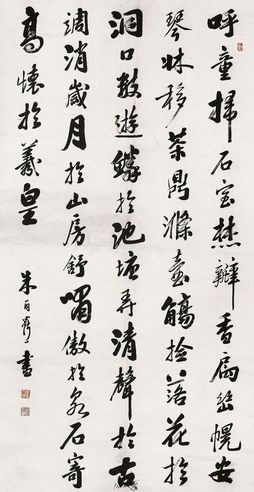 呼童掃石室焚瓣香扃岫幌安
琴牀移茶鼎滌壺觴拾落花於
洞口散遊鱗於池塘弄清聲於古
調消歲月於山房舒嘯傲於泉石寄
高懷於羲皇
朱百書